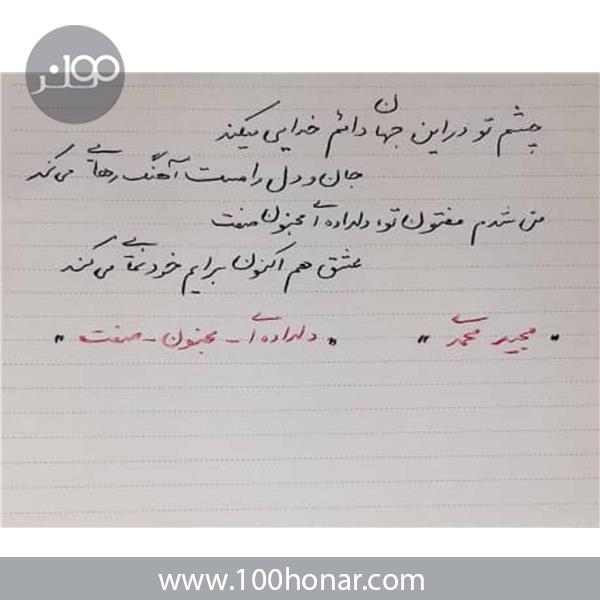 ۱۰۰هنر
چشم تو در این جهان دائم خدایی میکند
جان و دل را مست آهنگ رهایی می‌کند
من شدم مفتون تو، دلداده‌ای مجنون صفت
عشق هم اکنون برایم خودنمایی می‌کند
"مجید محمدی" "دلداده‌ای - مجنون - صفت"
www.100honar.com